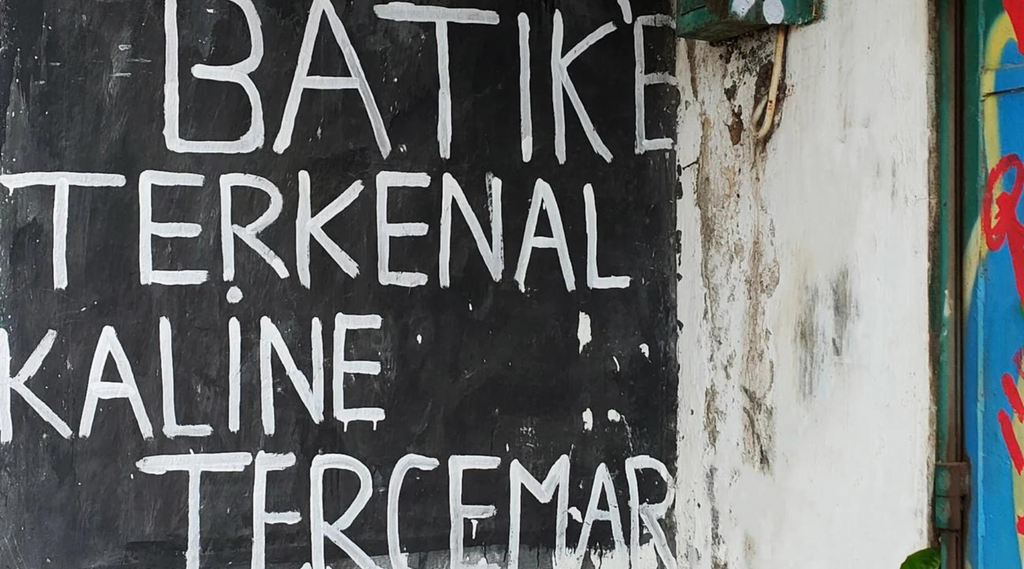 BATIK'E
TERKENAL
KALINE
TERCEMAR